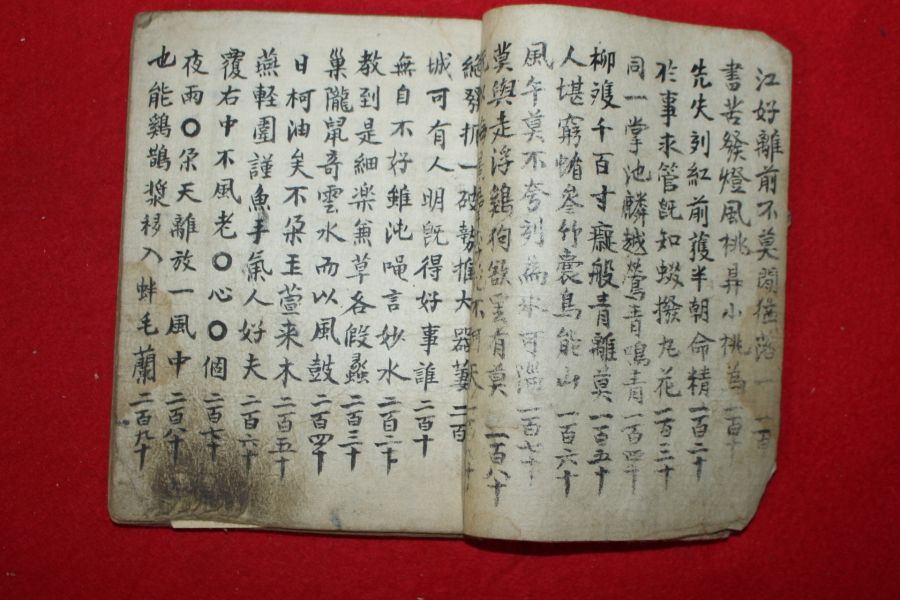 江好離前不莫問猶滔一 一百
書苦發燈風桃昇小桃為 一百十
先失列紅前護半朝命精 一百二十
於事求管既知蝃撥九花 一百三十
同一掌池麟越鶯青鳴青 一百四十
柳殘千百寸癡般青離莫 一百五十
人堪窮惰參竹囊鳥能山 一百六十
風午莫不夸列為 可 一百七十
莫輿走浮鷄狗欲 有莫 一百八十
總發抓一破勢推大器妻 二百
城可有人明既得好事誰 二百十
無自不好雖沌嘿言妙水 二百二十
教到是細楽兼草各假蠡 二百三十
巢隴鼠奇雲水而以風鼓 二百四十
日柯油矣不朶玉萱来木 二百五十
燕軽園謹魚手氣人好夫 二百六十
覆右中不風老〇心〇個 二百七十
夜雨〇朶天離放一風中 二百八十
也能鷄鵲漿移入蚌毛蘭 二百九十